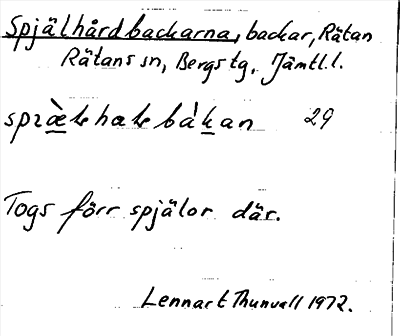 Spjälhårdbackarna, backar, Rätan
Rätans sn, Bergs tg. Jämtl.l.
29
Togs förr spjälor där.
Lennart Thunvall 1972.